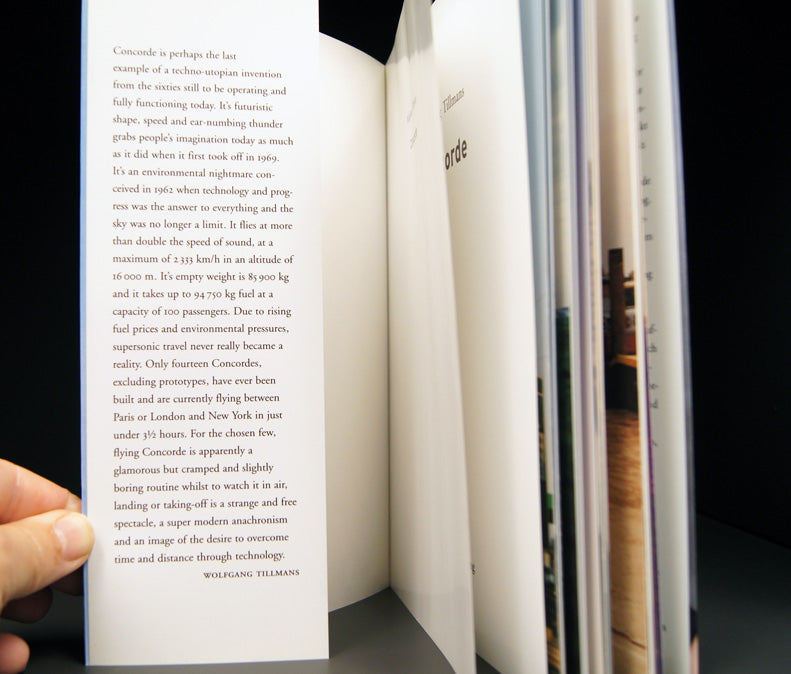 Concorde is perhaps the last
example of a techno-utopian invention
from the sixties still to be operating and
fully functioning today. It's futuristic
shape, speed and ear-numbing thunder
grabs people's imagination today as much
as it did when it first took off in 1969.
It's an environmental nightmare con-
ceived in 1962 when technology and prog-
ress was the answer to everything and the
sky was no longer a limit. It flies at more
than double the speed of sound, at a
maximum of 2 333 km/h in an altitude of
16 000 m. It's empty weight is 85 900 kg
and it takes up to 94 750 kg fuel at a
capacity of 100 passengers. Due to rising
fuel prices and environmental pressures,
supersonic travel never really became a
reality. Only fourteen Concordes,
excluding prototypes, have ever been
built and are currently flying between
Paris or London and New York in just
under 3½ hours. For the chosen few,
flying Concorde is apparently a
glamorous but cramped and slightly
boring routine whilst to watch it in air,
landing or taking-off is a strange and free
spectacle, a super modern anachronism
and an image of the desire to overcome
time and distance through technology.
WOLFGANG TILLMANS
Tillmans
orde